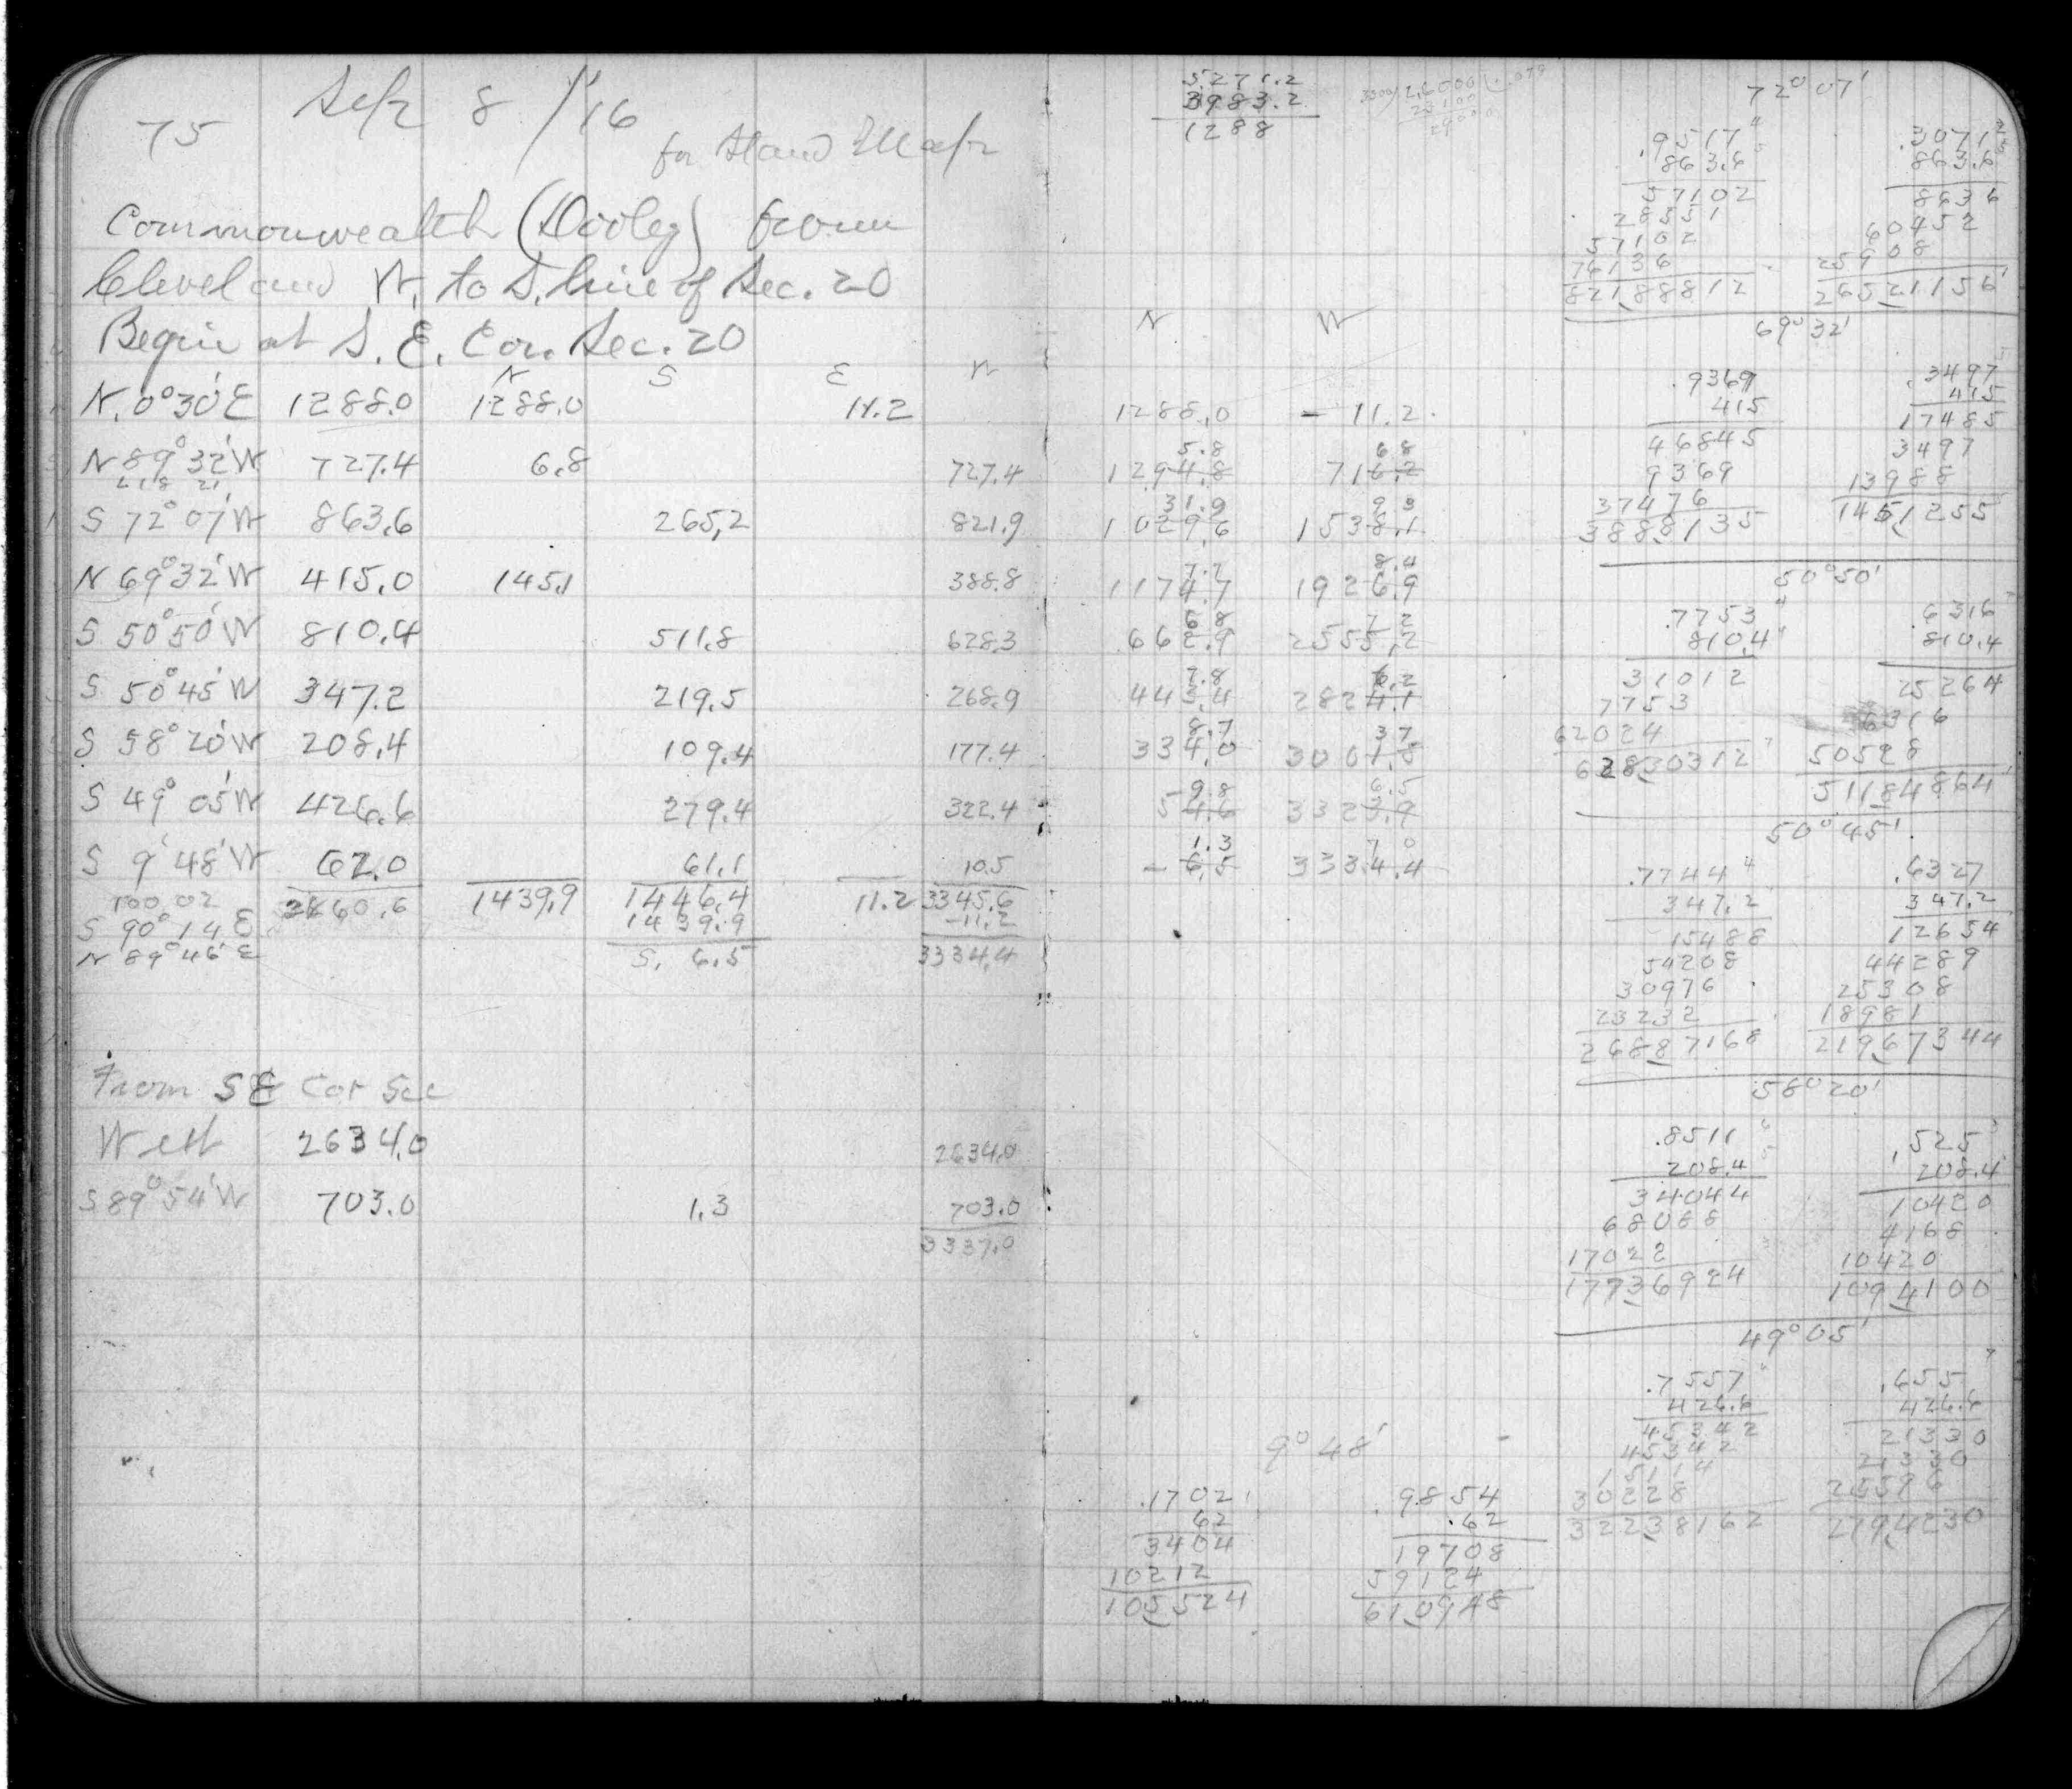 75 Sep 8 /'16
for Hand Map
Commonwealth (Dooley) from
Cleveland W. to S. line of Sec. 20
Begin at S. E. Cor. Sec. 20
N S E W
N. 0°30'E 1288.0 1288.0 11.2
N 89°32'W 727.4 6.8 727.4
S 72°07'W 863.6 265.2 821.9
N 69°32'W 415.0 145.1 388.8
S 50°50'W 810.4 511.8 628.3
S 50°45'W 347.2 219.5 268.9
S 58°20'W 208.4 109.4 177.4
S 49°05'W 426.6 279.4 322.4
S 9°48'W 62.0 61.1 10.5
100 02 60.6 1439.9 1446.4 11.2 3345.6
S 90°14'E 1439.9 -11.2
N 89°46'E S. 6.5 3334.4
From SE Cor Sec
West 2634.0 2634.0
S 89°54'W 703.0 1.3 703.0
3337.0
5271.2
3983.2
1288
N W
1288.0 - 11.2
5.8 6.8
1294.8 716.2
31.9 9.3
1029.6 1538.1
7.7 8.4
1174.7 1926.9
6.8 7.2
662.9 2555.2
7.8 6.2
443.4 2824.1
8.7 3.7
334.0 3001.5
-9.8 6.5
54.6 3323.9
1.3 7.0
- 6.5 3334.4
9°48'
.1702 .9854
62 .62
3404 19708
10212 59124
105524 610948
72°07'
.9517 .3071
863.6 863.6
57102 8636
28551 60452
57102 25908
76136
82188812 26521156
69°32'
.9369 .3497
415 415
46845 17485
9369 3497
37476 13988
3888135 1451255
50°50'
.7753 .6316
810.4 810.4
31012 25264
7753 6316
62024 50528
62830312 51184864
50°45'
.7744 .6327
347.2 347.2
15488 12654
54208 44289
30976 25308
23232 18981
26887168 21967344
58°20'
.8511 .525
208.4 208.4
34044 10420
68088 4168
17022 10420
17736924 1094100
49°05'
.7557 .655
426.6 426.6
45342 21330
45342 21330
15114 25596
30228
32238162 2794230